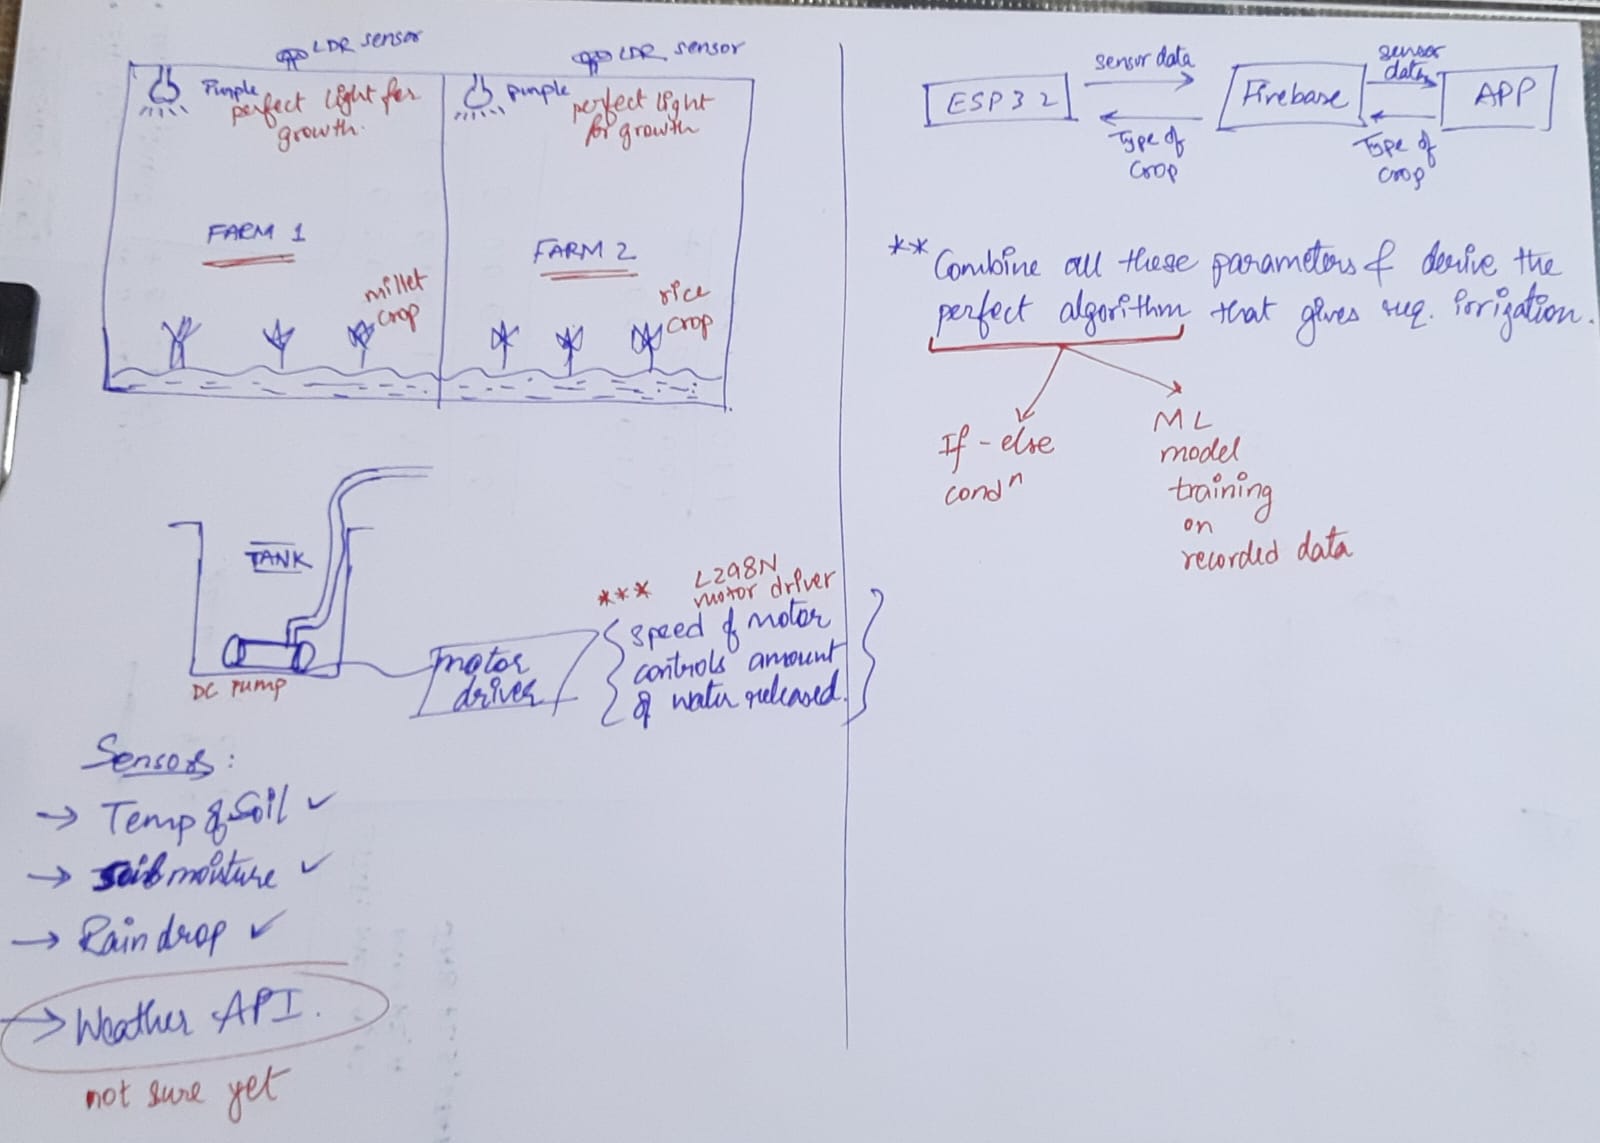 LDR sensor
Purple
perfect light for
growth.
FARM 1
millet
crop
LDR sensor
purple
perfect light
for growth
FARM 2
rice
crop
TANK
DC Pump
motor
driver
*** L298N
motor driver
speed of motor
controls amount
of water released.
Sensors:
→ Temp of Soil ✓
→ Soil moisture ✓
→ Rain drop ✓
→ Weather API.
not sure yet
ESP32
sensor data
Type of
crop
Firebase
sensor
data
Type of
crop
APP
** Combine all these parameters & derive the
perfect algorithm that gives req. irrigation.
If-else
condⁿ
ML
model
training
on
recorded data